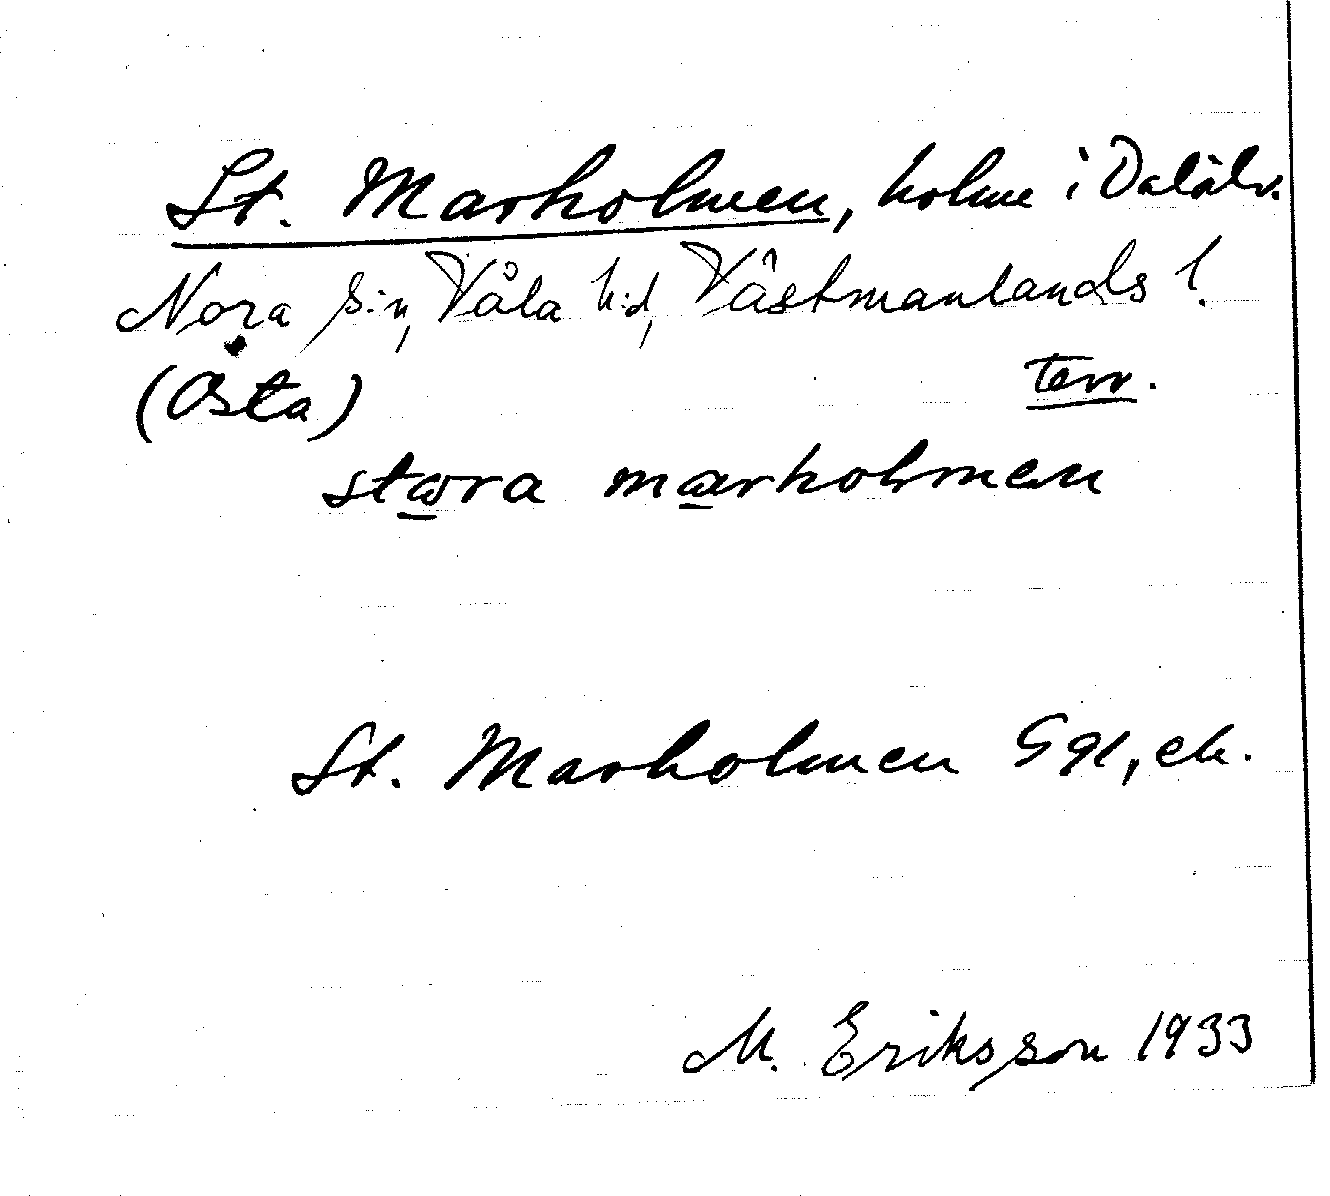 St. Marholmen, holme i Dalälv.
Nora s:n, Våla h:d, Västmanlands l.
(Östa) terr.
stɷra marholmen
St. Marholmen Ggl, ek.
M. Eriksson 1933